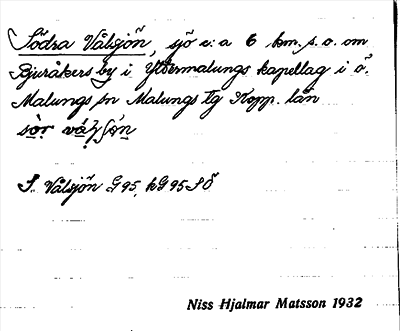 Södra Vålsjön, sjö c:a 6 km. s.o. om
Bjuråkers by i Yttermalungs kapellag i ö.
Malungs sn Malungs tg Kopp. län
S. Vålsjön G95, hG95SÖ
Niss Hjalmar Matsson 1932